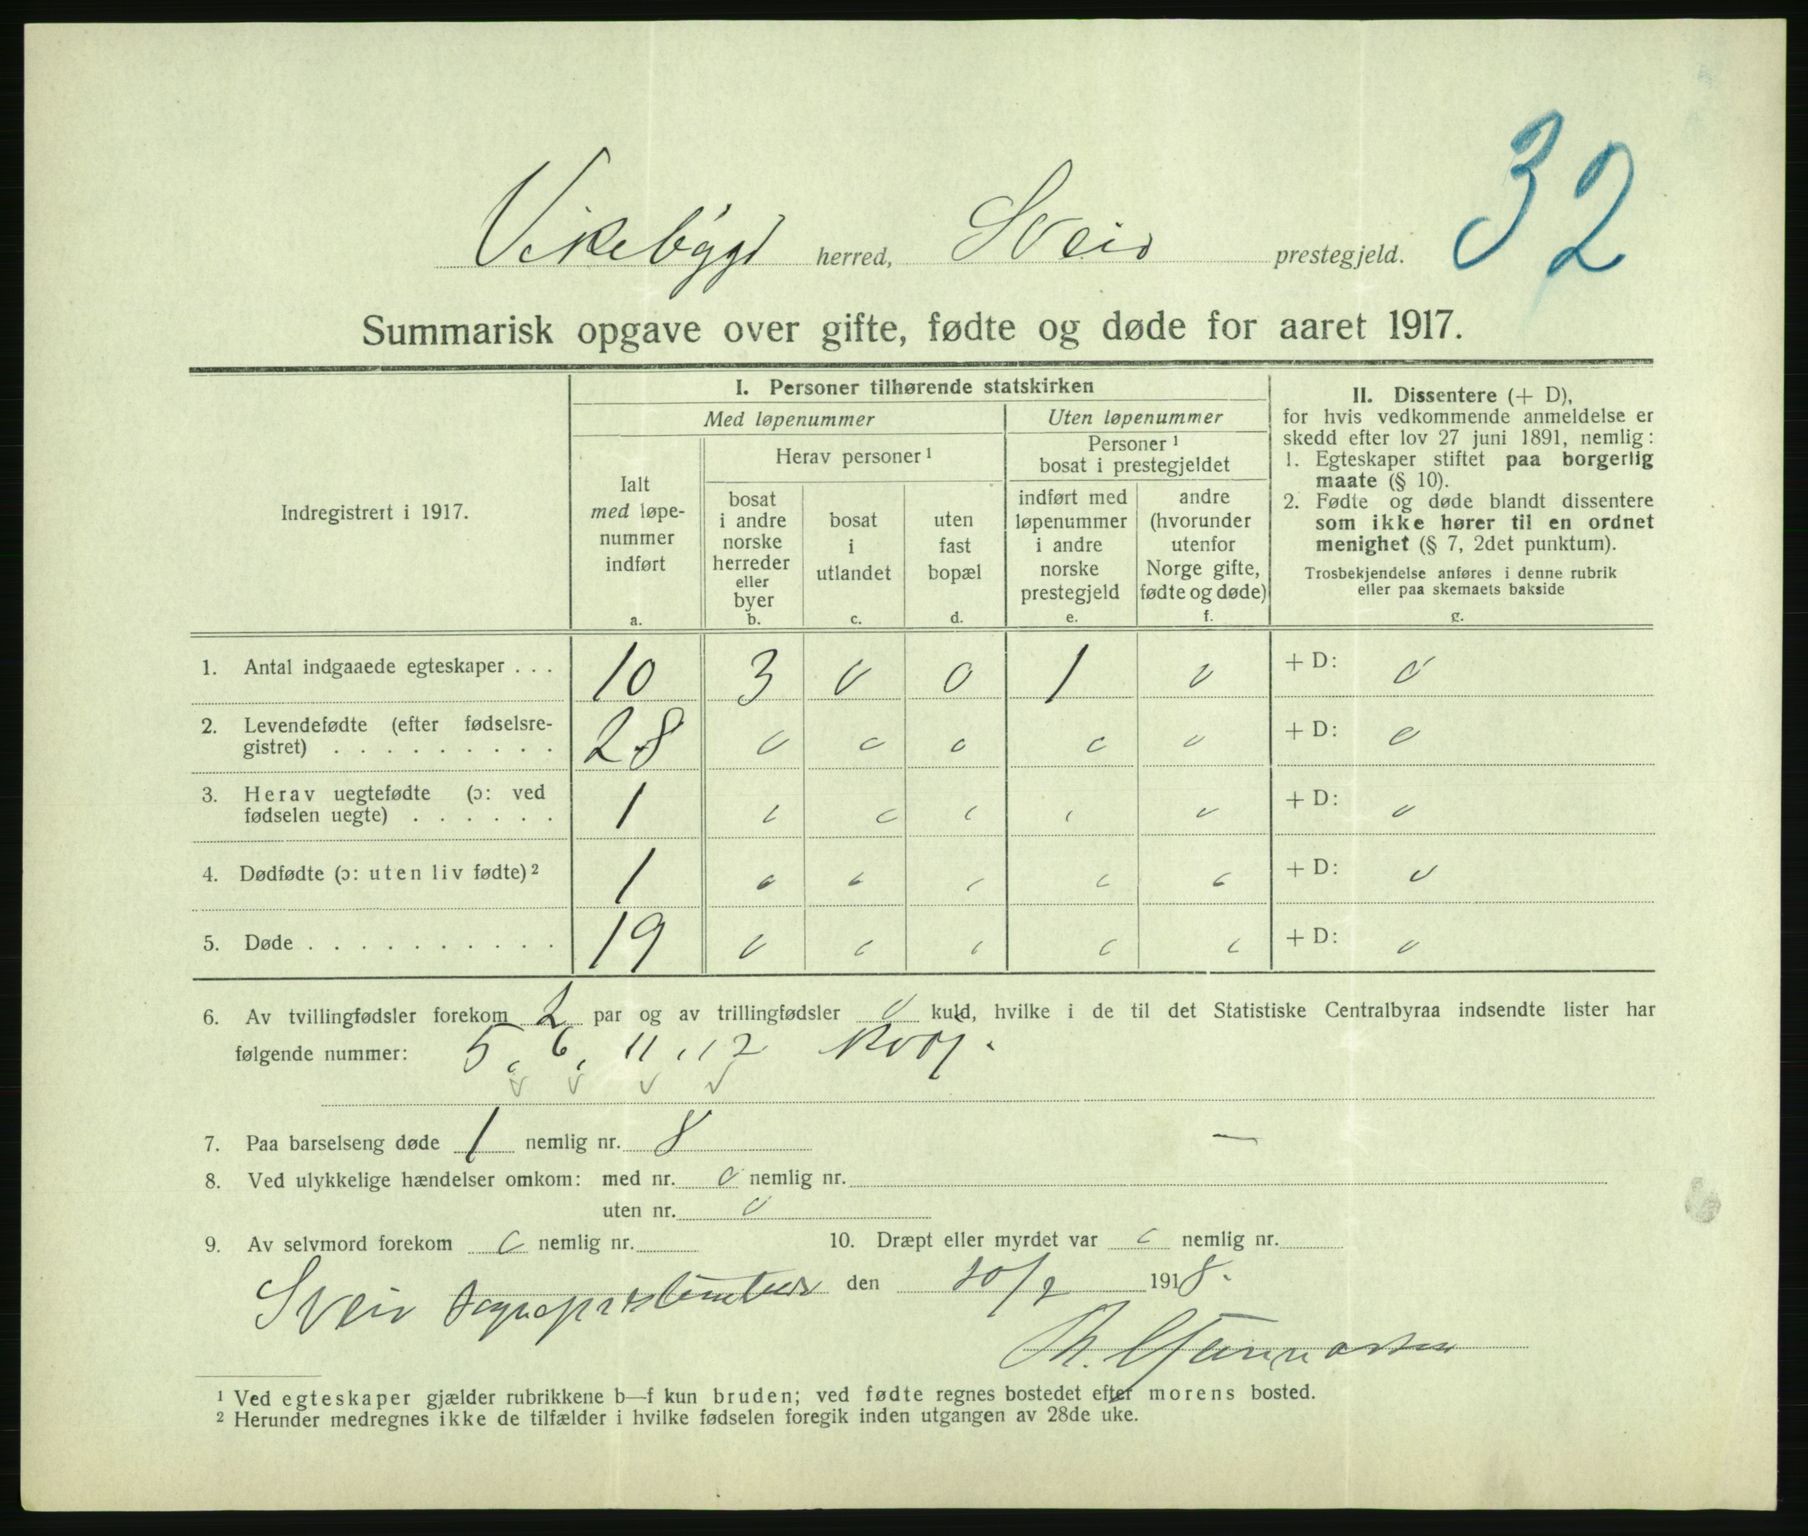 32
Vikebygd herred, Sveio prestegjeld.
Summarisk opgave over gifte, fødte og døde for aaret 1917.
Indregistrert i 1917.
I. Personer tilhørende statskirken
Med løpenummer
Uten løpenummer
Ialt
med løpe-
nummer
indført
a.
Herav personer 1
bosat
i andre
norske
herreder
eller
byer
b.
bosat
i
utlandet
c.
uten
fast
bopæl
d.
Personer 1
bosat i prestegjeldet
indført med
løpenummer
i andre
norske
prestegjeld
e.
andre
(hvorunder
utenfor
Norge gifte,
fødte og døde)
f.
II. Dissentere (+ D),
for hvis vedkommende anmeldelse er
skedd efter lov 27 juni 1891, nemlig:
1. Egteskaper stiftet paa borgerlig
maate (§ 10).
2. Fødte og døde blandt dissentere
som ikke hører til en ordnet
menighet (§ 7, 2det punktum).
Trosbekjendelse anføres i denne rubrik
eller paa skemaets bakside
g.
1. Antal indgaaede egteskaper . . . 10 3 0 0 1 0 + D: 0
2. Levendefødte (efter fødselsre-
gistret) . . . . . . . . . 28 0 0 0 0 0 + D: 0
3. Herav uegtefødte (ɔ: ved
fødselen uegte) . . . . . . 1 0 0 0 0 0 + D: 0
4. Dødfødte (ɔ: uten liv fødte) 2 1 0 0 0 0 0 + D: 0
5. Døde . . . . . . . . . . 19 0 0 0 0 0 + D: 0
6. Av tvillingfødsler forekom 2 par og av trillingfødsler 0 kuld, hvilke i de til det Statistiske Centralbyraa indsendte lister har
følgende nummer: 5, 6, 11, 12
7. Paa barselseng døde 1 nemlig nr. 8 —
8. Ved ulykkelige hændelser omkom: med nr. 0 nemlig nr.
uten nr. 0
9. Av selvmord forekom 0 nemlig nr. 10. Dræpt eller myrdet var 0 nemlig nr.
Sveio den 10/2 1918.
Th.
1 Ved egteskaper gjælder rubrikkene b—f kun bruden; ved fødte regnes bostedet efter morens bosted.
2 Herunder medregnes ikke de tilfælder i hvilke fødselen foregik inden utgangen av 28de uke.